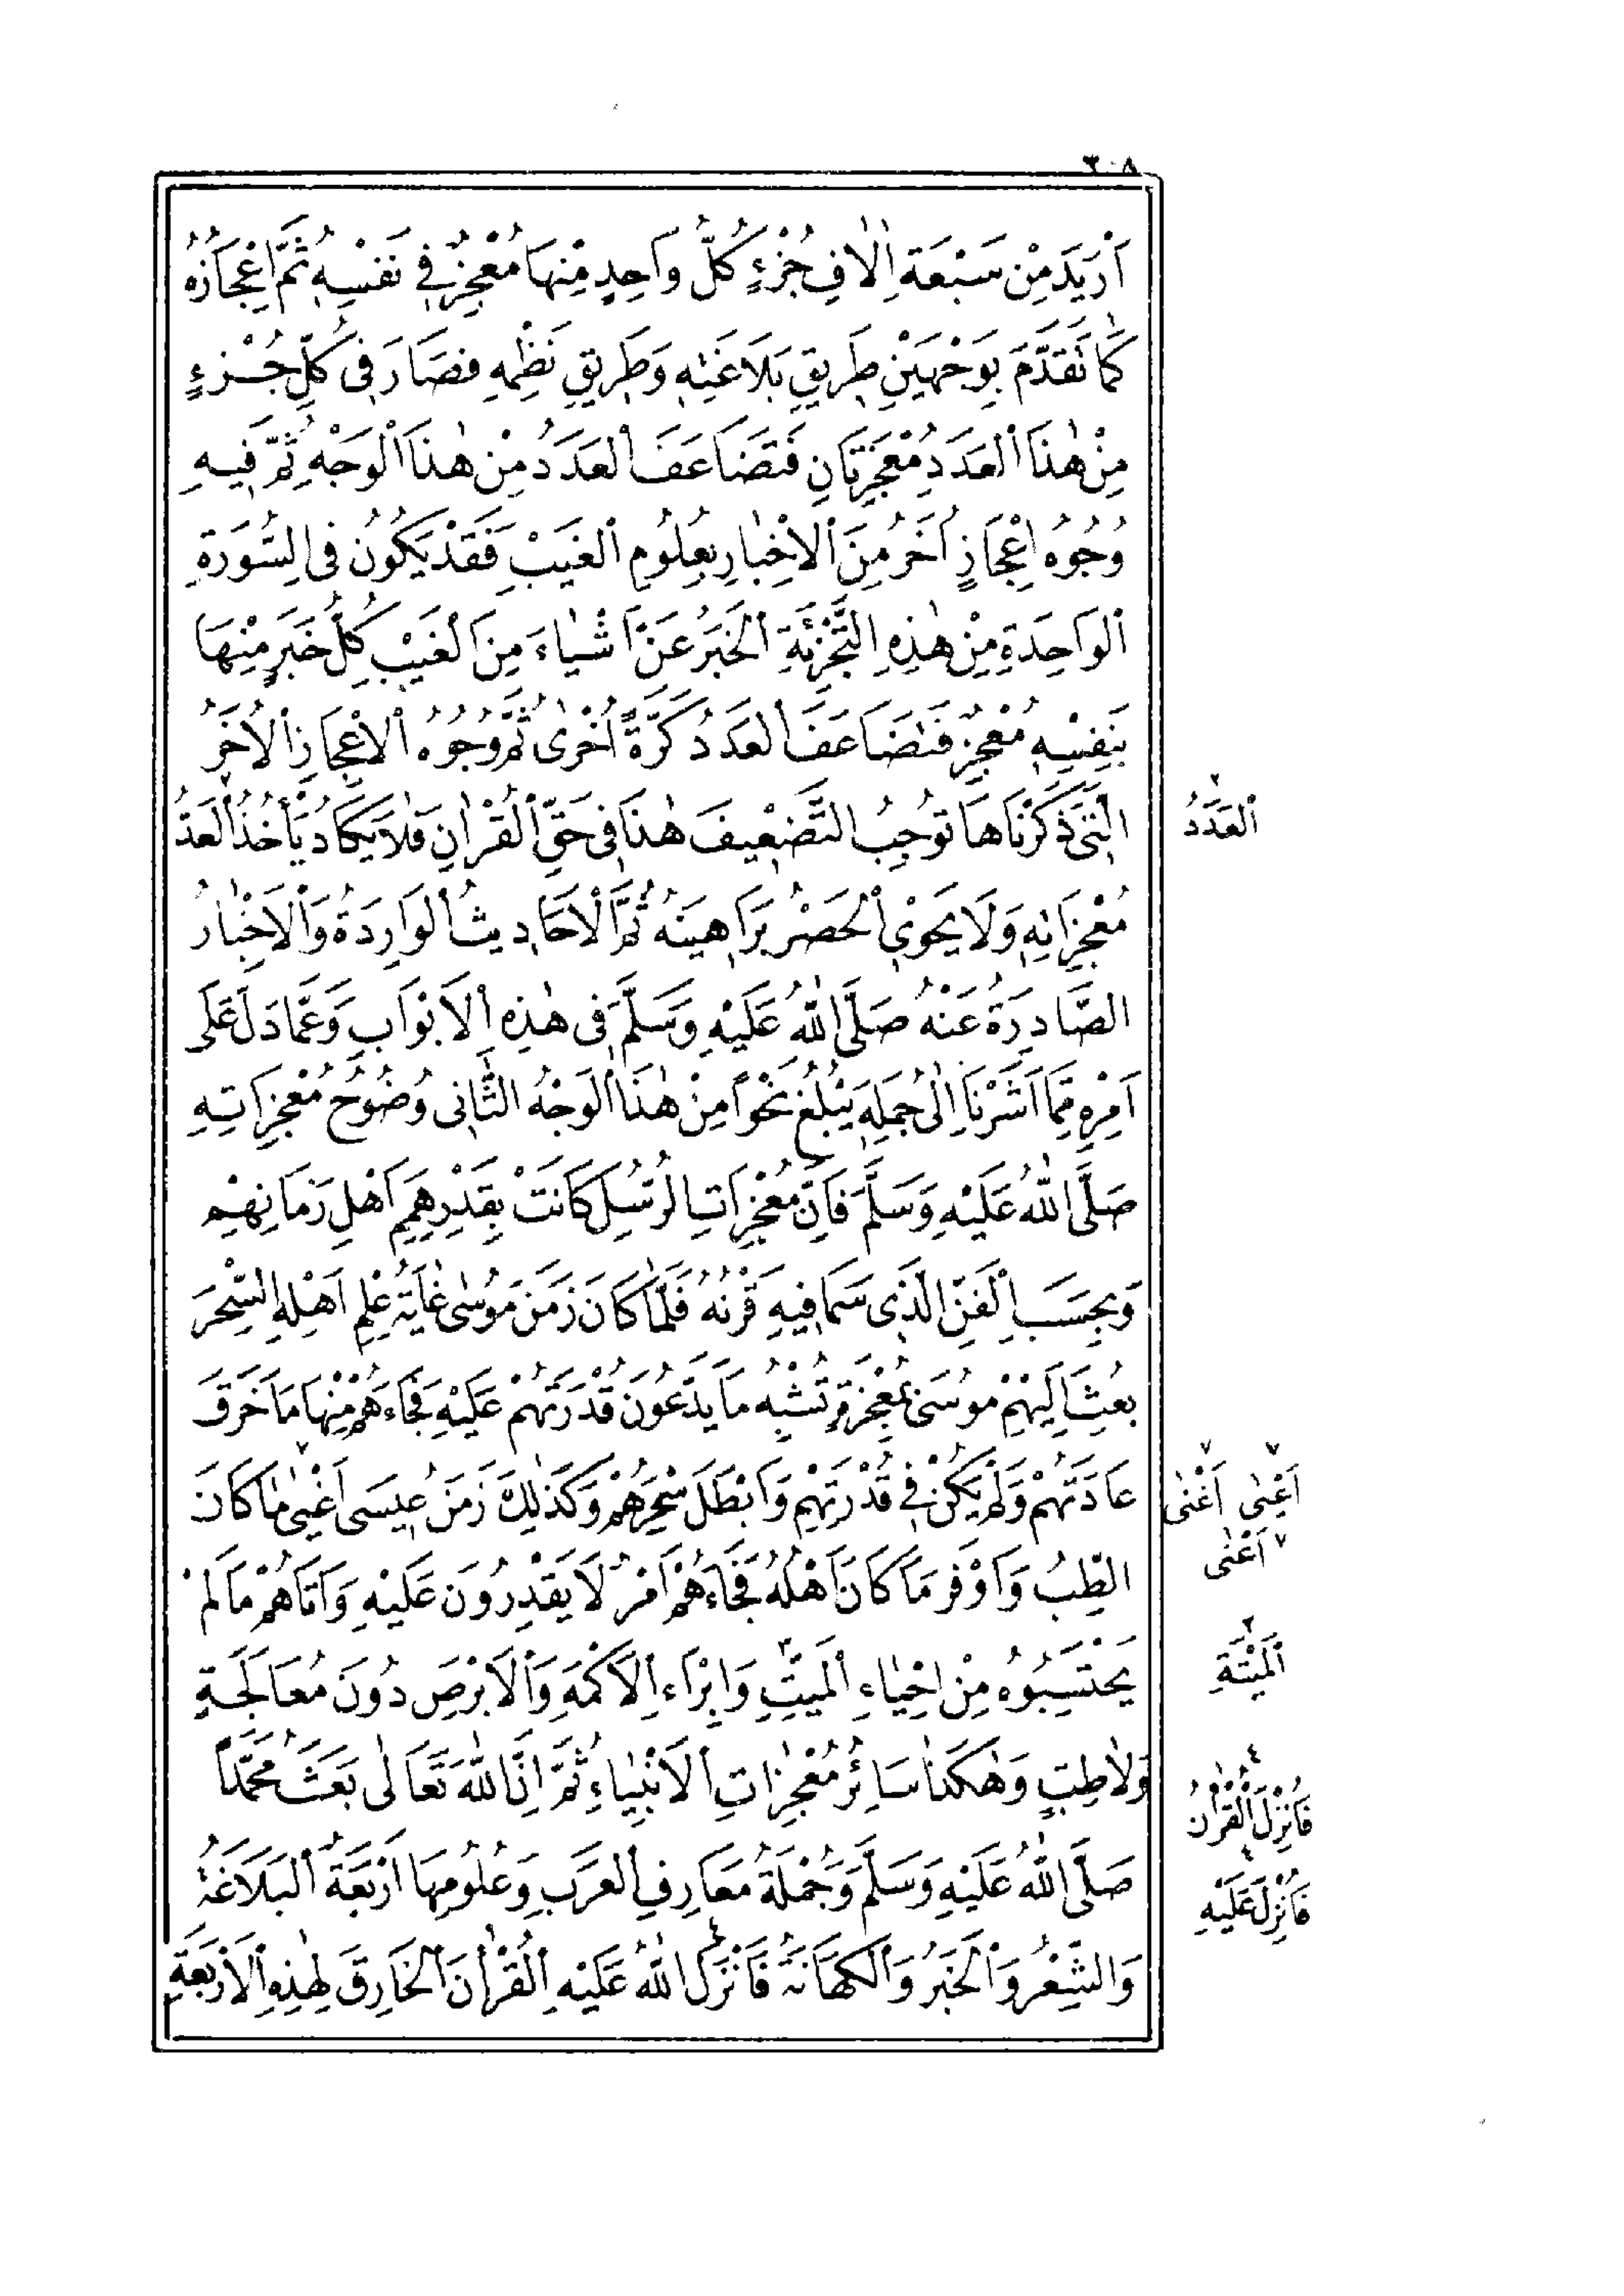 ٣٠٨
أَزْيَدَ مِنْ سَبْعَةِ اٰلَافِ جُزْءٍ كُلُّ وَاحِدٍ مِنْهَا مُعْجِزٌ فِي نَفْسِهِ ثُمَّ إِعْجَازُهُ
كَمَا تَقَدَّمَ بِوَجْهَيْنِ طَرِيقِ بَلَاغَتِهِ وَطَرِيقِ نَظْمِهِ فَصَارَ فِي كُلِّ جُزْءٍ
مِنْ هٰذَا الْعَدَدِ مُعْجِزَتَانِ فَتَضَاعَفَ الْعَدَدُ مِنْ هٰذَا الْوَجْهِ ثُمَّ فِيهِ
وُجُوهُ إِعْجَازٍ أُخَرُ مِنَ الْاِخْبَارِ بِعُلُومِ الْغَيْبِ فَقَدْ يَكُونُ فِي السُّورَةِ
الْوَاحِدَةِ مِنْ هٰذِهِ التَّجْزِئَةِ الْخَبَرُ عَنْ أَشْيَاءَ مِنَ الْغَيْبِ كُلُّ خَبَرٍ مِنْهَا
بِنَفْسِهِ مُعْجِزٌ فَتَضَاعَفَ الْعَدَدُ كَرَّةً أُخْرَى ثُمَّ وُجُوهُ الْاِعْجَازِ الْأُخَرُ
الَّتِي ذَكَرْنَاهَا تُوجِبُ التَّضْعِيفَ هٰذَا فِي حَقِّ الْقُرْاٰنِ فَلَا يَكَادُ يَأْخُذُ الْعَدُّ
الْعَدَدُ
مُعْجِزَاتِهِ وَلَا يَحْوِي الْحَصْرُ بَرَاهِينَهُ ثُمَّ الْأَحَادِيثُ الْوَارِدَةُ وَالْأَخْبَارُ
الصَّادِرَةُ عَنْهُ صَلَّى اللّٰهُ عَلَيْهِ وَسَلَّمَ فِي هٰذِهِ الْأَبْوَابِ وَعَمَّا دَلَّ عَلَى
أَمْرِهِ مِمَّا أَشَرْنَا إِلَى جُمَلِهِ يَبْلُغُ نَحْوًا مِنْ هٰذَا الْوَجْهُ الثَّانِي وُضُوحُ مُعْجِزَاتِهِ
صَلَّى اللّٰهُ عَلَيْهِ وَسَلَّمَ فَإِنَّ مُعْجِزَاتِ الرُّسُلِ كَانَتْ بِقَدْرِ هِمَمِ أَهْلِ زَمَانِهِمْ
وَبِحَسَبِ الْفَنِّ الَّذِي سَمَا فِيهِ قَرْنُهُ فَلَمَّا كَانَ زَمَنَ مُوسَى غَايَةُ عِلْمِ أَهْلِهِ السِّحْرَ
بُعِثَ إِلَيْهِمْ مُوسَى بِمُعْجِزَةٍ تُشْبِهُ مَا يَدَّعُونَ قُدْرَتَهُمْ عَلَيْهِ فَجَاءَهُمْ مِنْهَا مَا خَرَقَ
عَادَتَهُمْ وَلَمْ يَكُنْ فِي قُدْرَتِهِمْ وَأَبْطَلَ سِحْرَهُمْ وَكَذٰلِكَ زَمَنَ عِيسَى أَغْيَى مَا كَانَ
أَعْيَى أَغْنَى
أَعْنَى
الطِّبُّ وَأَوْفَرَ مَا كَانَ أَهْلُهُ فَجَاءَهُمْ أَمْرٌ لَا يَقْدِرُونَ عَلَيْهِ وَأَتَاهُمْ مَا لَمْ
يَحْتَسِبُوهُ مِنْ إِحْيَاءِ الْمَيِّتِ وَإِبْرَاءِ الْأَكْمَهِ وَالْأَبْرَصِ دُونَ مُعَالَجَةٍ
الْمَيْتَةِ
وَلَا طِبٍّ وَهٰكَذَا سَائِرُ مُعْجِزَاتِ الْأَنْبِيَاءِ ثُمَّ إِنَّ اللّٰهَ تَعَالَى بَعَثَ مُحَمَّدًا
فَأُنْزِلَ الْقُرْاٰنُ
صَلَّى اللّٰهُ عَلَيْهِ وَسَلَّمَ وَجُمْلَةُ مَعَارِفِ الْعَرَبِ وَعُلُومِهَا أَرْبَعَةٌ الْبَلَاغَةُ
فَأُنْزِلَ عَلَيْهِ
وَالشِّعْرُ وَالْخَبَرُ وَالْكَهَانَةُ فَأَنْزَلَ اللّٰهُ عَلَيْهِ الْقُرْاٰنَ الْخَارِقَ لِهٰذِهِ الْأَرْبَعَةِ